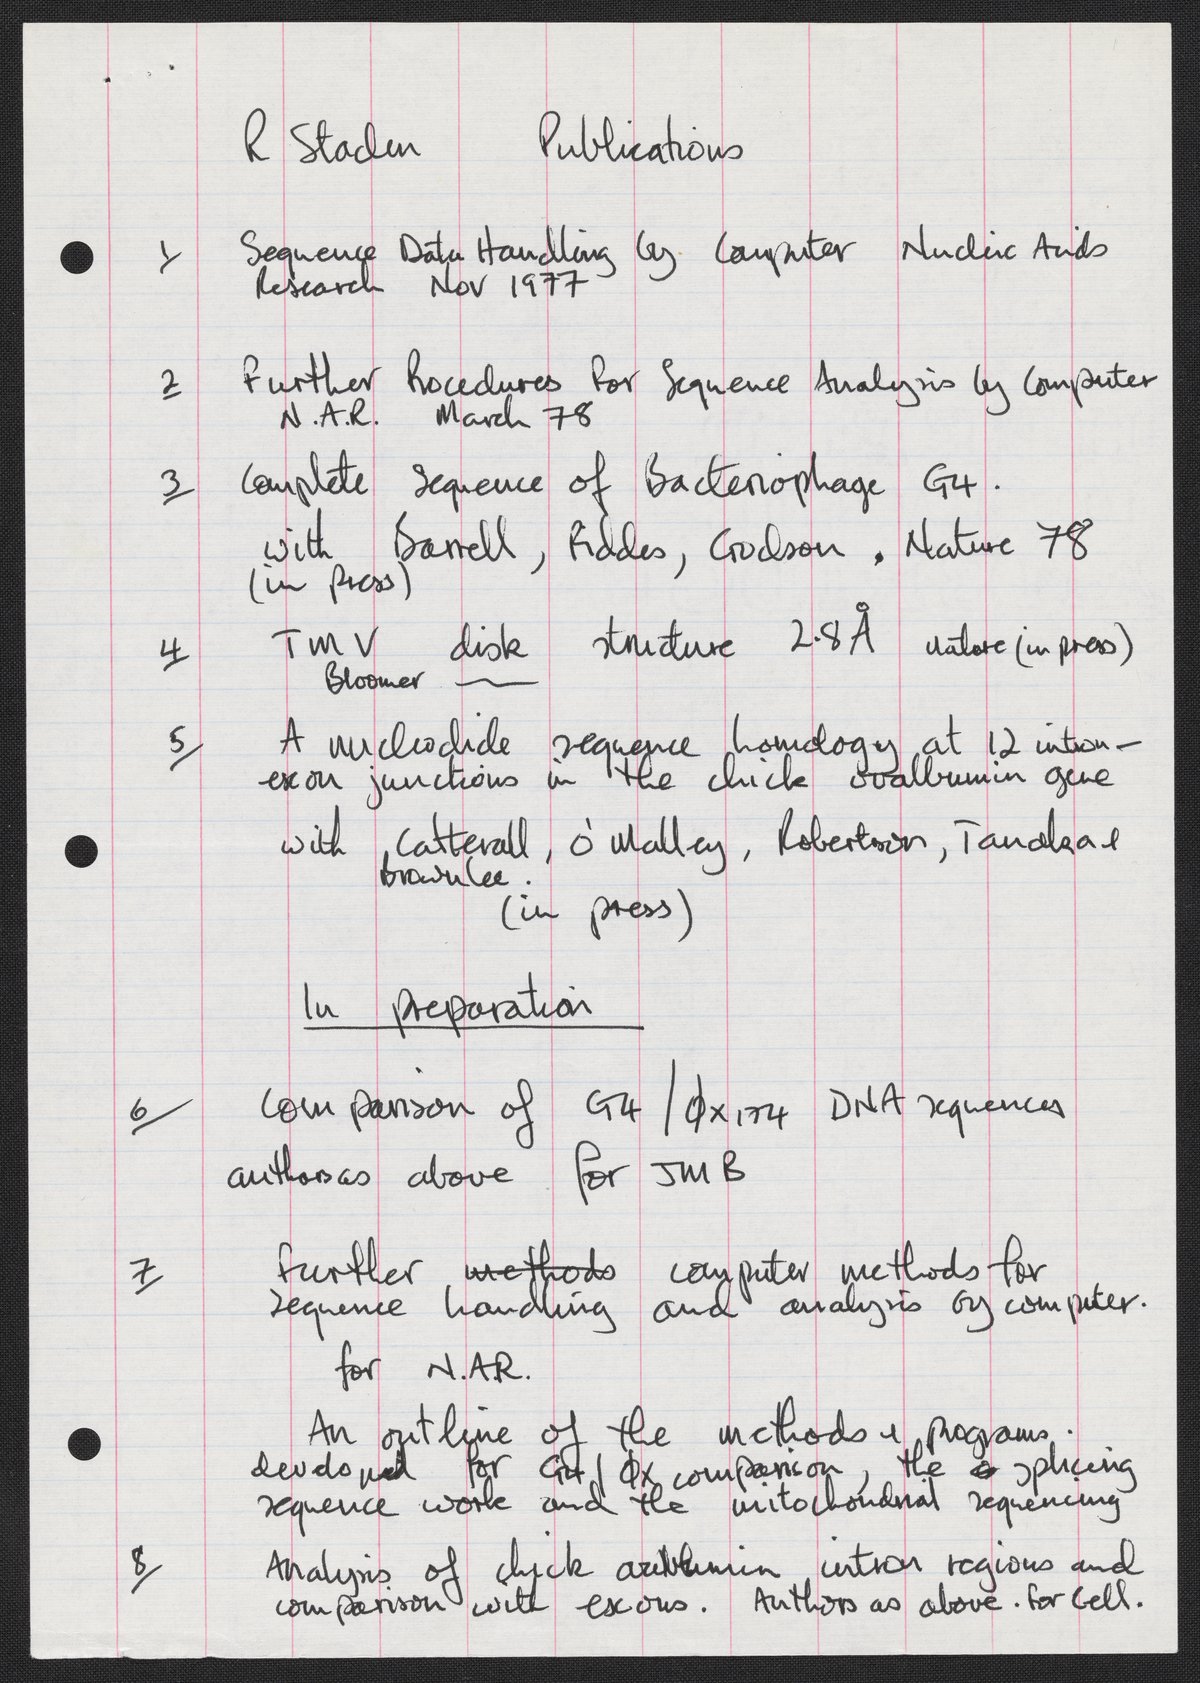 R Staden Publications
1 Sequence Data Handling by Computer Nucleic Acids
Research Nov 1977
2 Further Procedures for Sequence Analysis by Computer
N.A.R. March 78
3 Complete Sequence of Bacteriophage G4.
with Barrell, Fiddes, Godson. Nature 78
(in press)
4 TMV disk structure 2.8Å nature (in press)
Bloomer
5 A nucleotide sequence homology at 12 intron-
exon junctions in the chick ovalbumin gene
with Catterall, O'Malley, Robertson, Tanaka &
Brownlee.
(in press)
In preparation
6 Comparison of G4/ϕX174 DNA sequences
authors as above for JMB
7 Further methods computer methods for
sequence handling and analysis by computer.
for N.A.R.
An outline of the methods & programs.
developed for G4/ϕX comparison, the splicing
sequence work and the mitochondrial sequencing
8 Analysis of chick intron regions and
comparison with exons. Authors as above. for Cell.